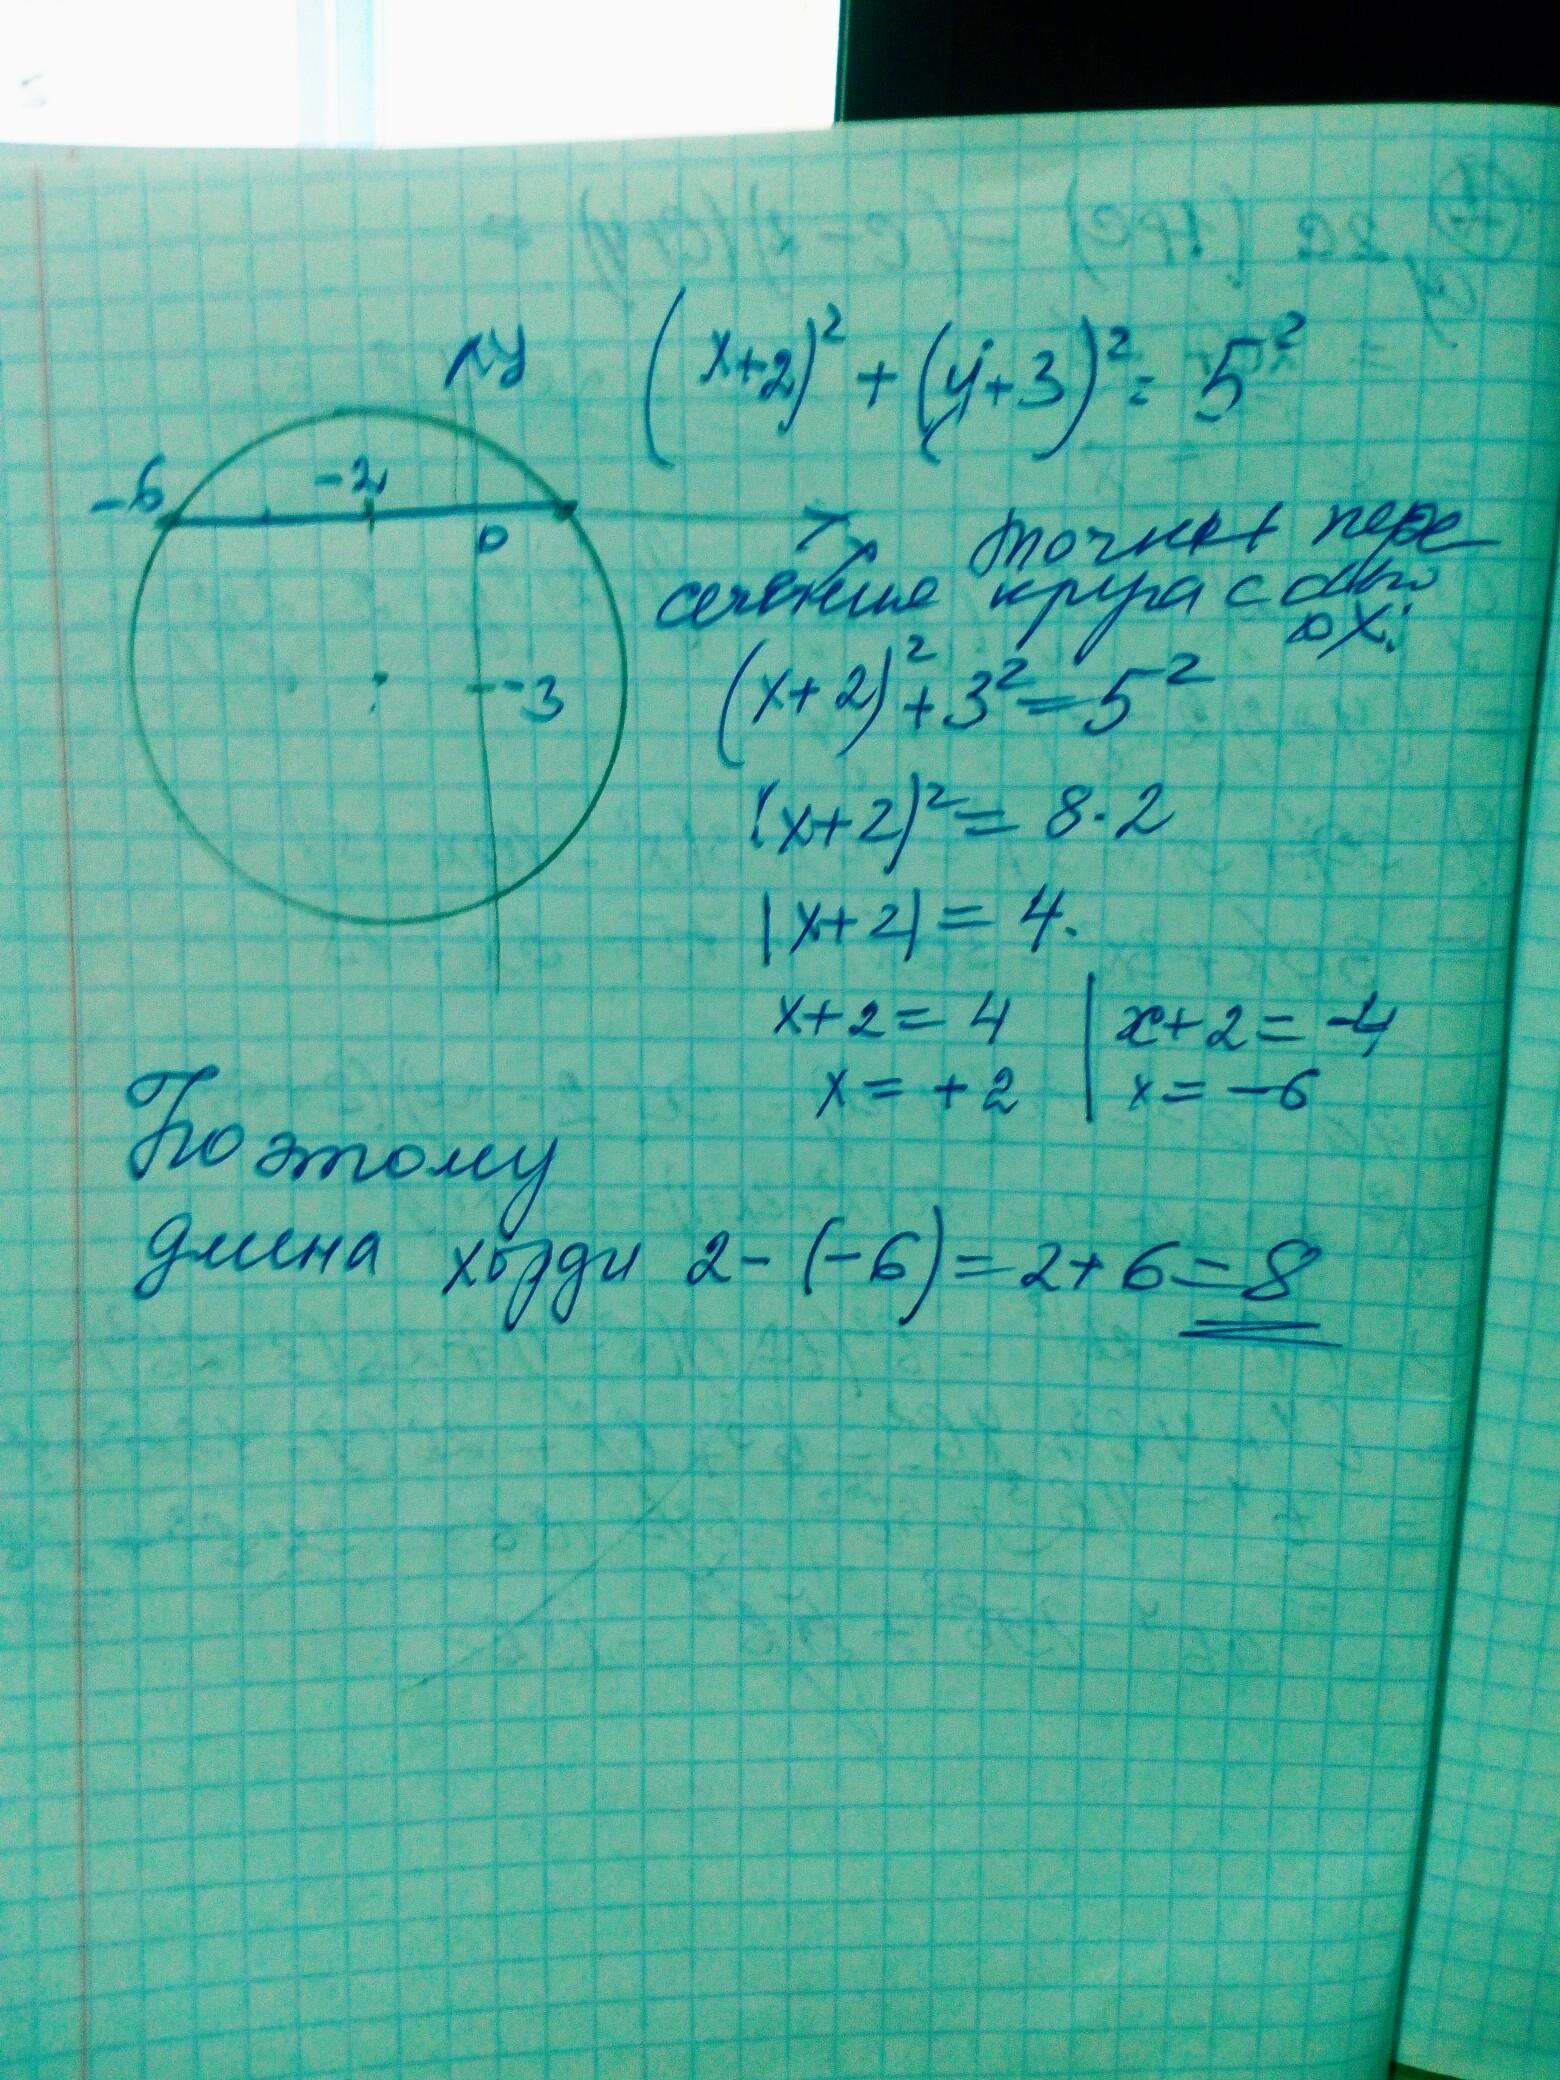 (x+2)² + (y+3)² = 5²
у
-6
-2
0
х
-3
точки пере
сечения круга с осью
ох:
(x+2)² + 3² = 5²
(x+2)² = 8·2
|x+2| = 4.
x+2 = 4 | x+2 = -4
x = +2 | x = -6
Поэтому
длина хорди 2-(-6) = 2+6 = 8